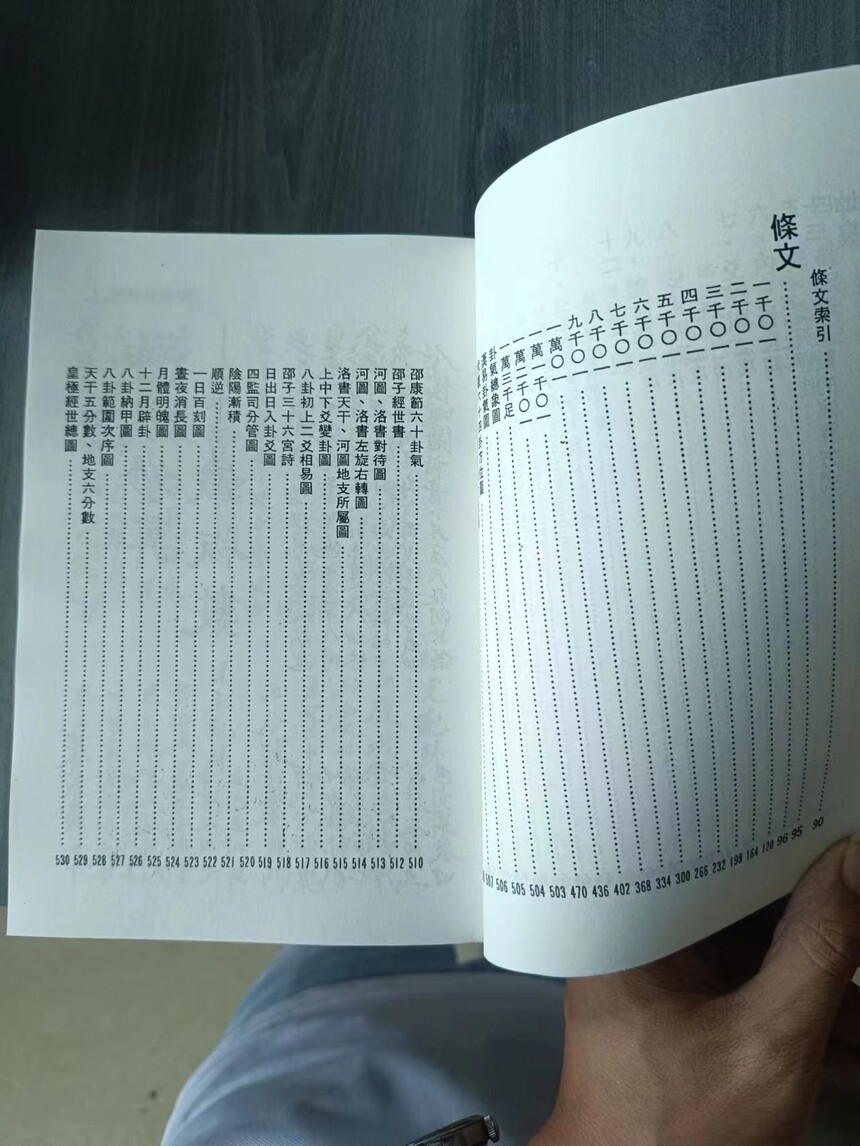 條文索引 90
條文 95
一千〇一 96
二千〇一 120
三千〇一 164
四千〇一 198
五千〇一 232
六千〇一 266
七千〇一 300
八千〇一 334
九千〇一 368
一萬〇一 402
一萬一千〇一 436
一萬二千〇一 470
一萬三千足 503
卦氣總象圖 504
卦氣圖 505
506
507
邵康節六十卦氣 510
邵子經世書 512
河圖、洛書對待圖 513
河圖、洛書左旋右轉圖 514
洛書天干、河圖地支所屬圖 515
上中下爻變卦圖 516
八卦初上二爻相易圖 517
邵子三十六宮詩 518
日出日入卦爻圖 519
四監司分管圖 520
陰陽漸積 521
順逆 522
一日百刻圖 523
晝夜消長圖 524
月體明魄圖 525
十二月辟卦 526
八卦納甲圖 527
八卦範圍次序圖 528
天干五分數、地支六分數 529
皇極經世總圖 530